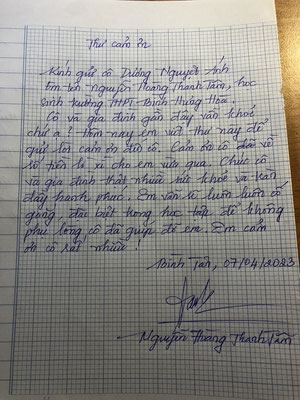 Thư cảm ơn
Kính gửi cô Dương Nguyệt Ánh
Em tên Nguyễn Hoàng Thanh Tâm, học
sinh trường THPT Bình Hưng Hòa.
Cô và gia đình gần đây vẫn khoẻ
chứ ạ? Hôm nay em viết thư này để
gửi lời cảm ơn đến cô. Cảm ơn cô đã về
số tiền lì xì cho em vừa qua. Chúc cô
và gia đình thật nhiều sức khoẻ và tràn
đầy hạnh phúc. Em vẫn sẽ luôn luôn cố
gắng, đặc biệt trong học tập để không
phụ lòng cô đã giúp đỡ em. Em cảm
ơn cô rất nhiều!
Bình Tân, 07/04/2023
Nguyễn Hoàng Thanh Tâm